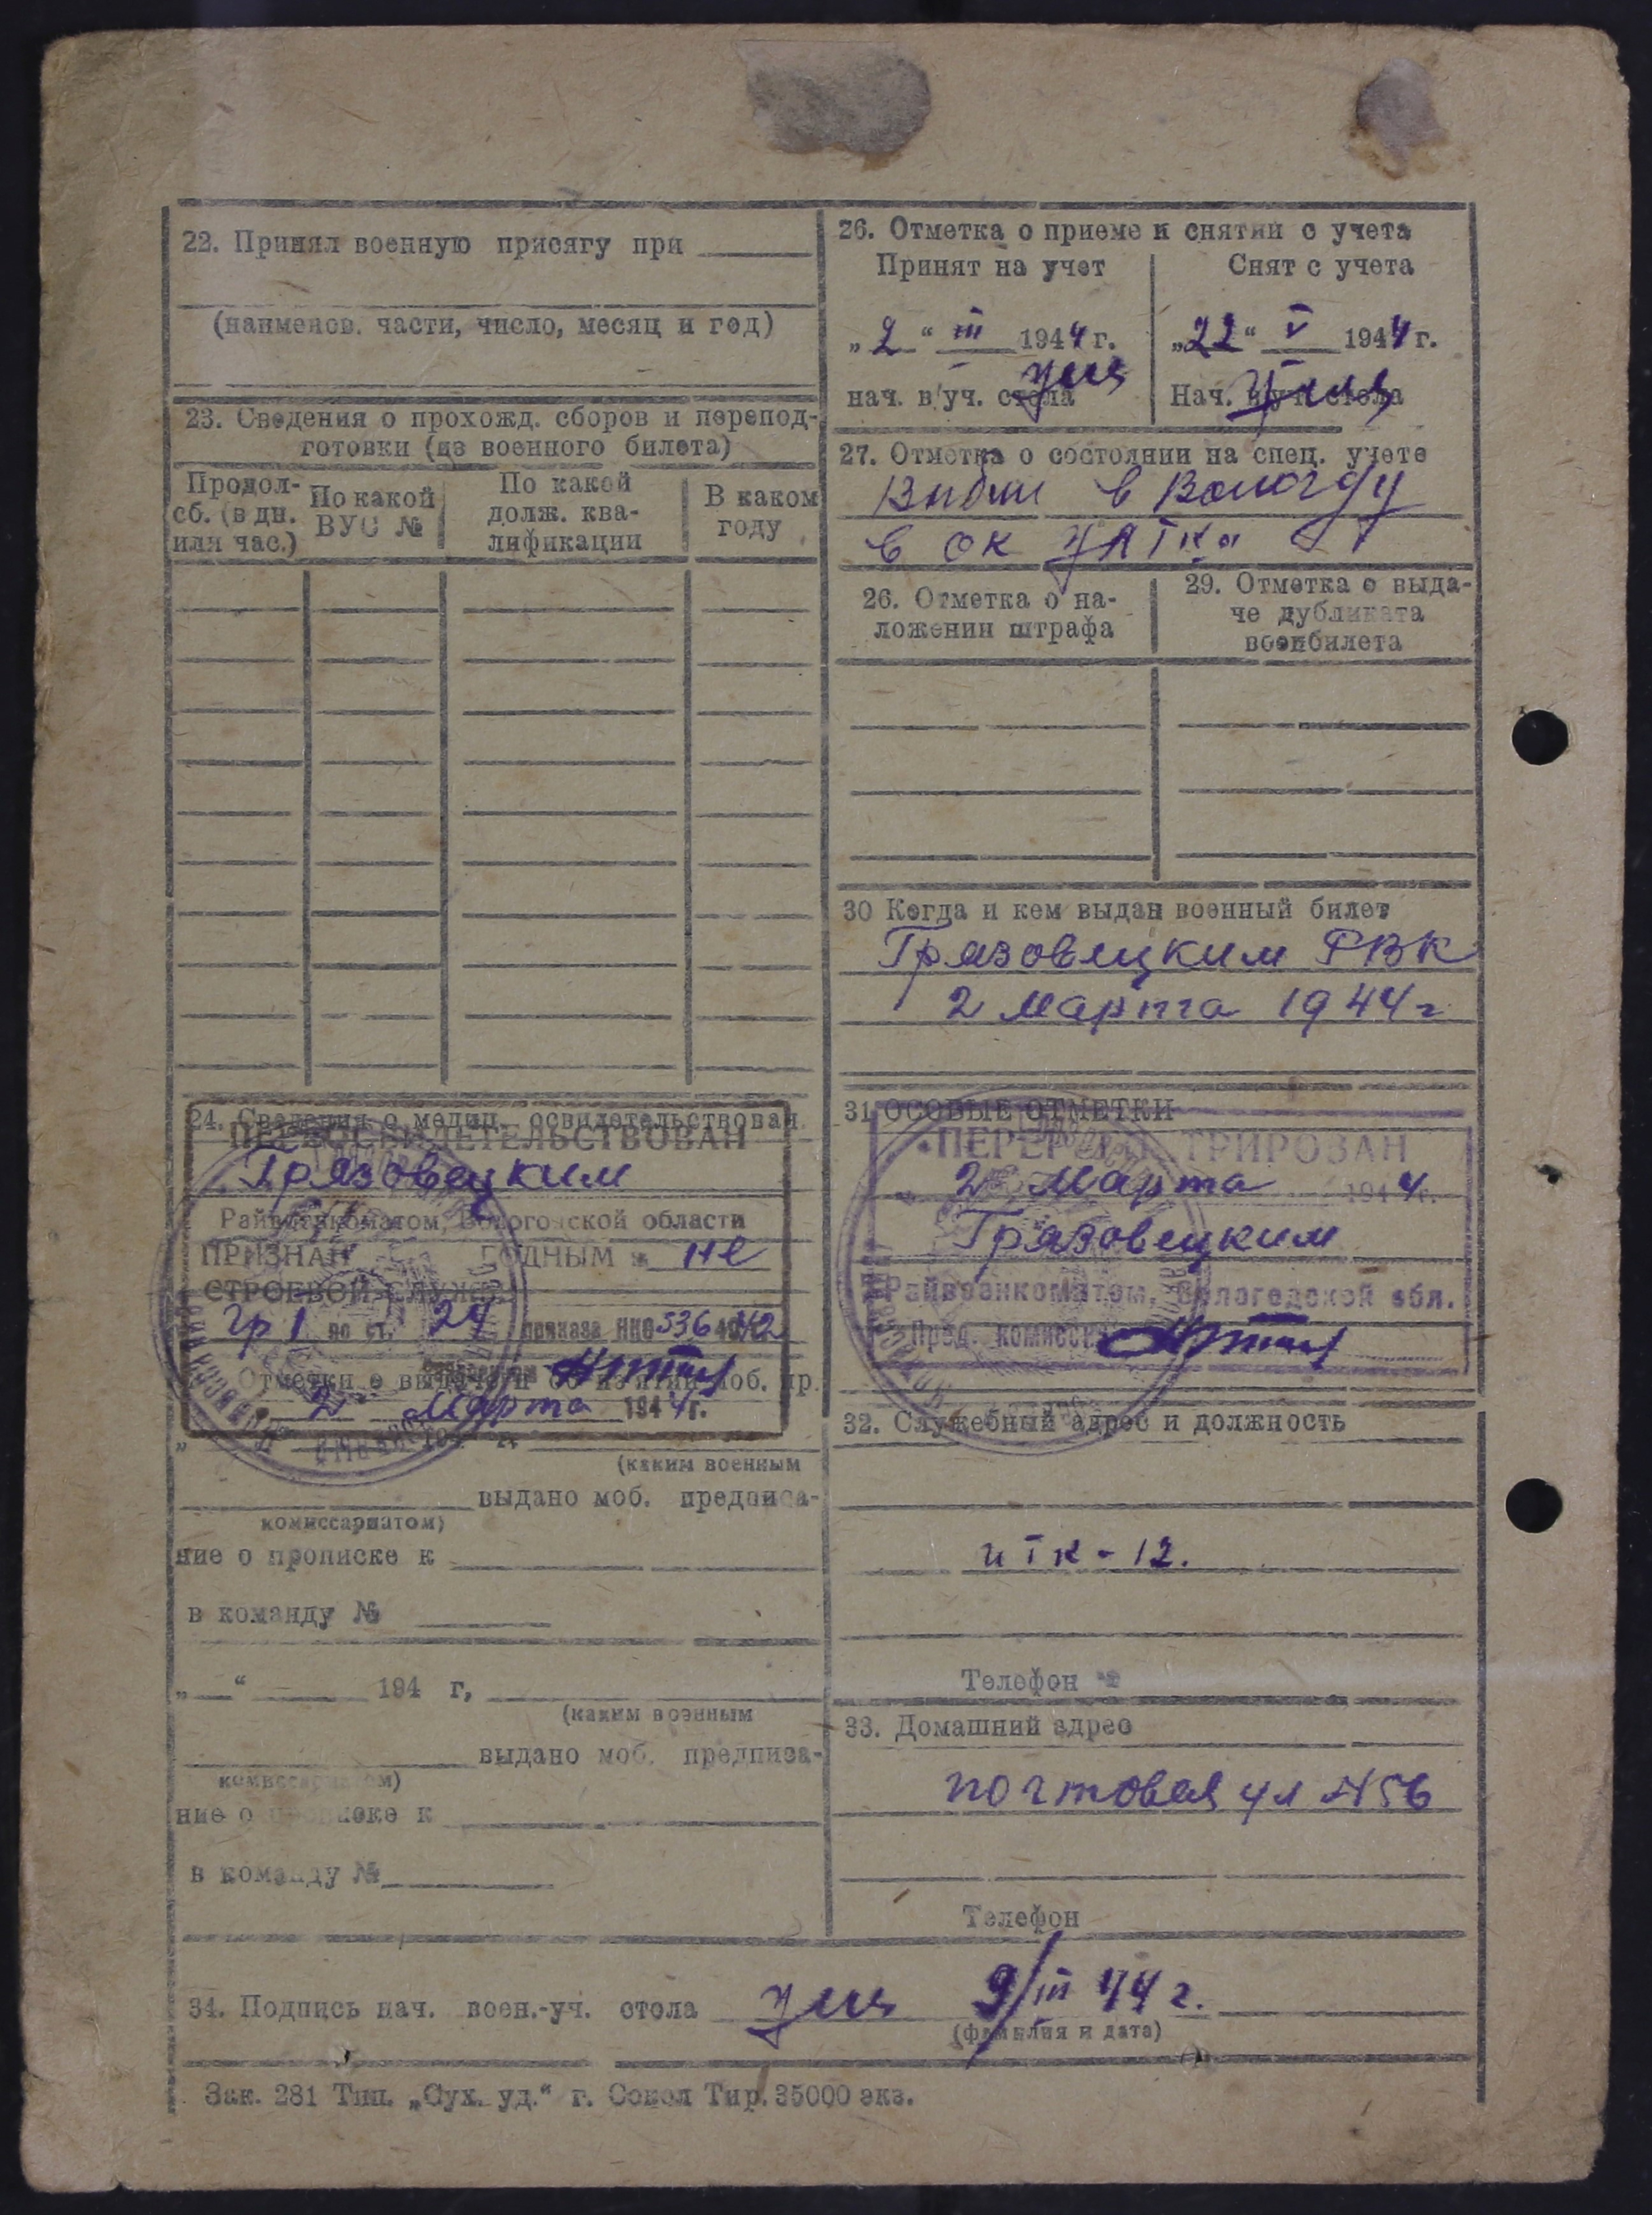 22. Принял военную присягу при
(наименов. части, число, месяц и год)
23. Сведения о прохожд. сборов и перепод-
готовки (из военного билета)
Продол-
сб. (в дн.
или час.)
По какой
ВУС №
По какой
долж. ква-
лификации
В каком
году
24. Сведения о медиц. освидетельствован.
ПЕРЕОСВИДЕТЕЛЬСТВОВАН
Грязовецким
Райвоенкоматом, Вологодской области
ПРИЗНАН ГОДНЫМ к не
СТРОЕВОЙ СЛУЖБЕ
гр 1 по ст. 24 приказа НКО 336 1942
Отметки о выдаче и об изятии моб. пр.
2 Марта 1944 г.
(каким военным
выдано моб. предписа-
комиссариатом)
ние о прописке к
в команду №
„ “ 194 г,
(каким военным
выдано моб. предписа-
комиссариатом)
ние о прописке к
в команду №
26. Отметка о приеме и снятии с учета
Принят на учет
Снят с учета
„2“ III 1944 г.
„22“ V 1944 г.
нач. в/уч. стола
Нач. в/уч. стола
27. Отметка о состоянии на спец. учете
в Вологду
в ОК
26. Отметка о на-
ложении штрафа
29. Отметка о выда-
че дубликата
военбилета
30 Когда и кем выдан военный билет
Грязовецким РВК
2 Марта 1944 г
31 ОСОБЫЕ ОТМЕТКИ
ПЕРЕРЕГИСТРИРОВАН
„2“ Марта 1944 г.
Грязовецким
Райвоенкоматом, Вологодской обл.
Пред. комисси
32. Служебный адрес и должность
ИТК - 12.
Телефон
33. Домашний адрес
почтовая ул № 56
Телефон
34. Подпись нач. воен.-уч. стола 9/III 44 г.
(фамилия и дата)
Зак. 281 Тип. „Сух. уд.“ г. Сокол Тир. 35000 экз.